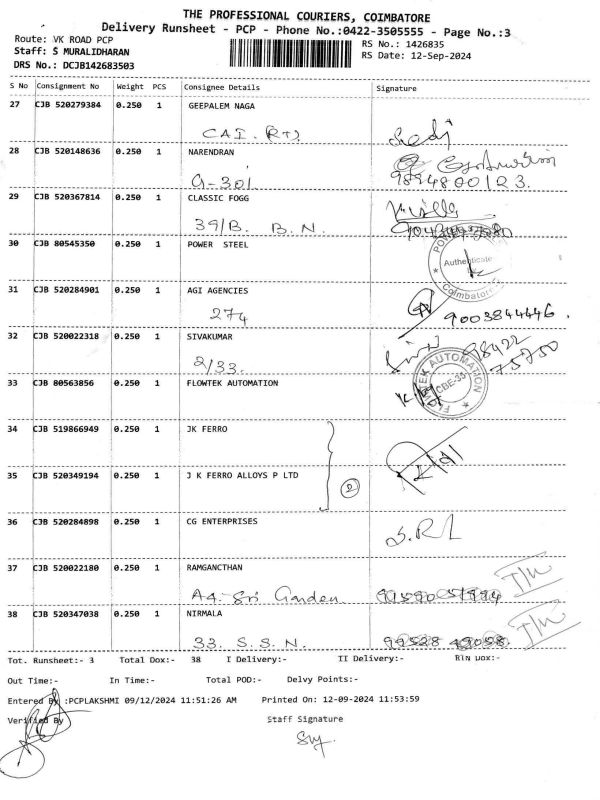 THE PROFESSIONAL COURIERS, COIMBATORE
Delivery Runsheet - PCP - Phone No.:0422-3505555 - Page No.:3
Route: VK ROAD PCP
RS No.: 1426835
Staff: S MURALIDHARAN
RS Date: 12-Sep-2024
DRS No.: DCJB142683503
S No Consignment No Weight PCS Consignee Details Signature
27 CJB 520279384 0.250 1 GEEPALEM NAGA
28 CJB 520148636 0.250 1 NARENDRAN
G-301 9894800123.
29 CJB 520367814 0.250 1 CLASSIC FOGG
39/B. B.N.
30 CJB 80545350 0.250 1 POWER STEEL
Authenticate
Coimbatore
31 CJB 520284901 0.250 1 AGI AGENCIES
274 9003844446.
32 CJB 520022318 0.250 1 SIVAKUMAR
2/33. 98422
75750
33 CJB 80563856 0.250 1 FLOWTEK AUTOMATION
FLOWTEK AUTOMATION
CBE-35
34 CJB 519866949 0.250 1 JK FERRO
35 CJB 520349194 0.250 1 J K FERRO ALLOYS P LTD
2
36 CJB 520284898 0.250 1 CG ENTERPRISES
37 CJB 520022180 0.250 1 RAMGANCTHAN
A4. Sri Garden
38 CJB 520347038 0.250 1 NIRMALA
33. S.S.N.
Tot. Runsheet:- 3 Total Dox:- 38 I Delivery:- II Delivery:- RTN Dox:-
Out Time:- In Time:- Total POD:- Delvy Points:-
Entered By :PCPLAKSHMI 09/12/2024 11:51:26 AM Printed On: 12-09-2024 11:53:59
Verified By Staff Signature